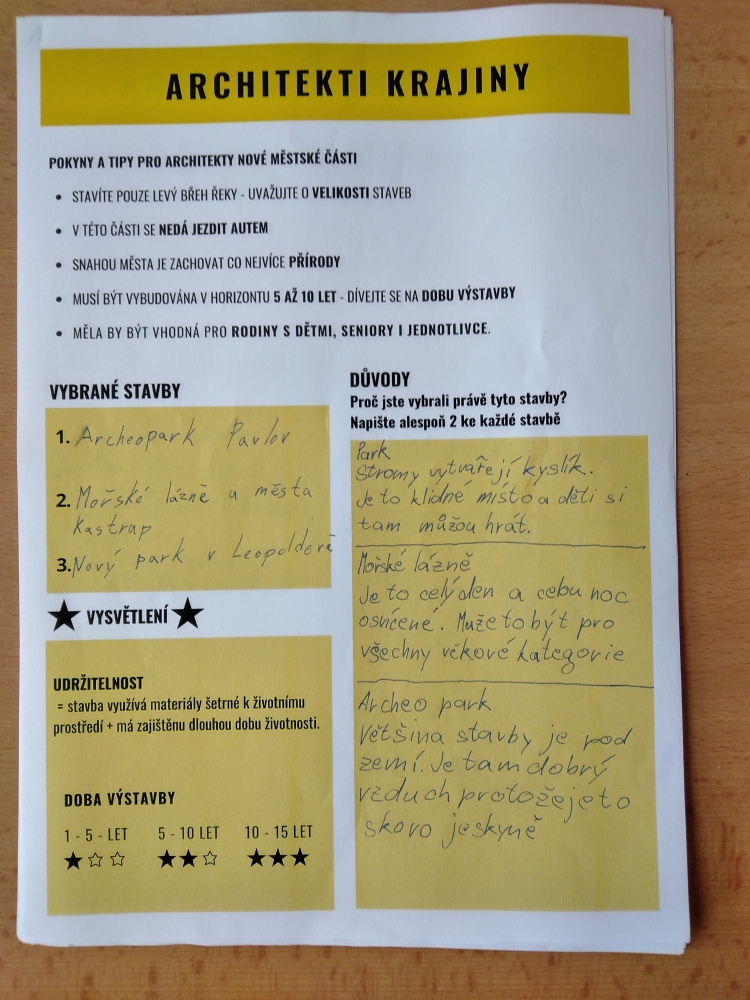 ARCHITEKTI KRAJINY
POKYNY A TIPY PRO ARCHITEKTY NOVÉ MĚSTSKÉ ČÁSTI
• STAVÍTE POUZE LEVÝ BŘEH ŘEKY - UVAŽUJTE O VELIKOSTI STAVEB
• V TÉTO ČÁSTI SE NEDÁ JEZDIT AUTEM
• SNAHOU MĚSTA JE ZACHOVAT CO NEJVÍCE PŘÍRODY
• MUSÍ BÝT VYBUDOVÁNA V HORIZONTU 5 AŽ 10 LET - DÍVEJTE SE NA DOBU VÝSTAVBY
• MĚLA BY BÝT VHODNÁ PRO RODINY S DĚTMI, SENIORY I JEDNOTLIVCE.
VYBRANÉ STAVBY
1. Archeopark Pavlov
2. Mořské lázně u města
Kastrup
3. Nový park v Leopoldově
★ VYSVĚTLENÍ ★
UDRŽITELNOST
= stavba využívá materiály šetrné k životnímu
prostředí + má zajištěnu dlouhou dobu životnosti.
DOBA VÝSTAVBY
1 - 5 - LET 5 - 10 LET 10 - 15 LET
★☆☆ ★★☆ ★★★
DŮVODY
Proč jste vybrali právě tyto stavby?
Napište alespoň 2 ke každé stavbě
Park
Stromy vytvářejí kyslík.
Je to klidné místo a děti si
tam můžou hrát.
Mořské lázně
Je to celý den a cebu noc
osvícené. Muže to být pro
všechny věkové kategorie
Archeo park
Většina stavby je pod
zemí. Je tam dobrý
vzduch protože je to
skoro jeskyně